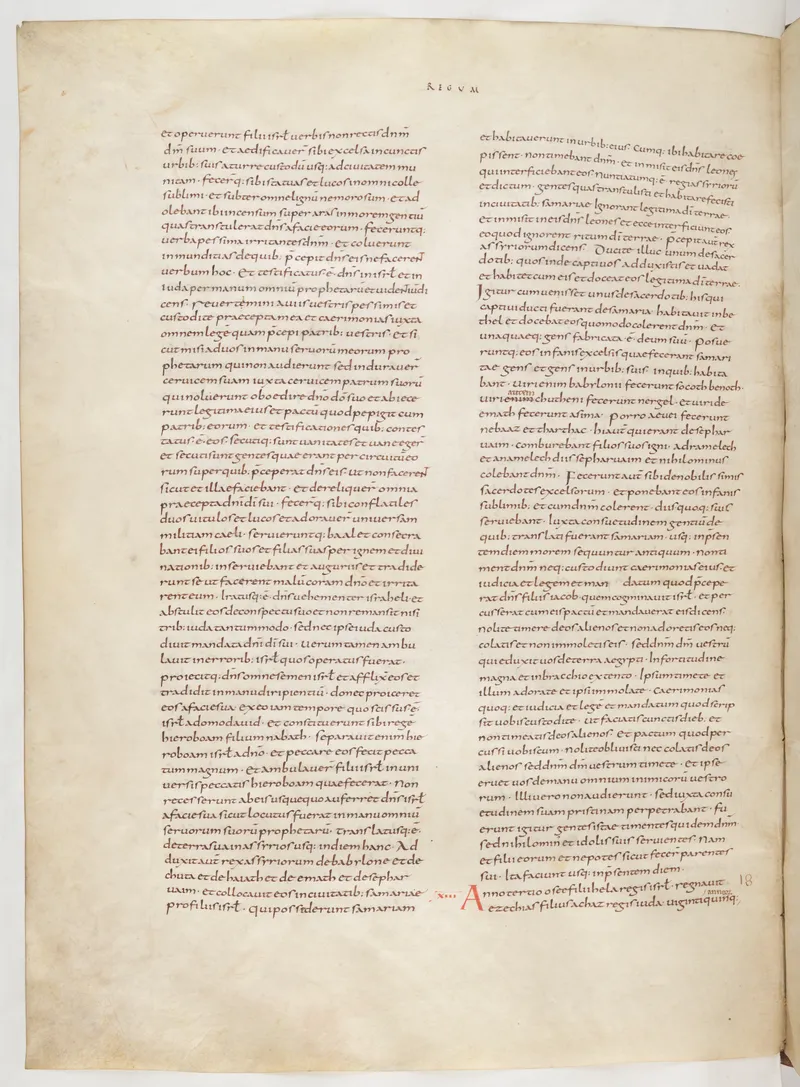 REGUM
et operuerunt filii isrl̄ uerbis non rectis dn̄m
dm̄ suum · et aedificauer̄ sibi excelsa in cunctis
urbib: suis a turre custodū usq: ad ciuitatem mu
nitam · fecer̄q: sibi statuas et lucos in omni colle
sublimi · et subter omne lignū nemorosum · et ad
olebant ibi incensum super aras in morem gentiū
quas transtulerat dn̄s a facie eorum · feceruntq:
uerba pessima irritantes dn̄m · et coluerunt
inmunditias de quib: p̄cepit dn̄s eis ne facerent
uerbum hoc · et testificatus ē dn̄s in isrl̄ et in
iuda per manum omniū prophetarū et uidentiū di
cens · Reuertemini a uiis uestris pessimis et
custodite praecepta mea et caerimonias iuxta
omnem legē quam p̄cepi patrib: uestris · et si
cut misi ad uos in manu seruorū meorum pro
phetarum qui non audierunt sed indurauer̄
ceruicem suam iuxta ceruicem patrum suorū
qui noluerunt oboedire dn̄o dō suo et abiece
runt legitima eius et pactū quod pepigit cum
patrib: eorum · et testificationes quib: contes
tatus ē eos · secutiq: sunt uanitates et uane eger̄
et secuti sunt gentes quae erant per circuitū eo
rum super quib: p̄ceperat dn̄s eis · ut non facerent
sicut et illae faciebant · et dereliquer̄ omnia
praecepta dn̄i dī sui · fecer̄q: sibi conflatiles
duos uitulos et lucos et adorauer̄ uniuersam
militiam caeli · seruieruntq: baal et consecra
bant ei filios suos et filias suas per ignem et diui
nationib: inseruiebant et auguriis et tradide
runt se ut facerent malū coram dn̄o et irrita
rent eum · Iratusq: ē dn̄s uehementer israheli et
abstulit eos de conspectu suo et non remansit nisi
trib: iuda tantummodo · sed nec ipse iuda custo
diuit mandata dn̄i dī sui · Uerum tamen ambu
lauit in errorib: isrl̄ quos operatus fuerat ·
proiecitq: dn̄s omne semen isrl̄ et afflixe eos et
tradidit in manu diripientiū · donec proiceret
eos a facie sua · ex eo iam tempore quo scissus ē
isrl̄ a domo dauid · et constituerunt sibi regē
hieroboam filium nabath · separauit enim hie
roboam isrl̄ a dn̄o · et peccare eos fecit pecca
tum magnum · et ambulauer̄ filii isrl̄ in uni
uersis peccatis hieroboam quae fecerat · Non
recesserunt ab eis usquequo auferret dn̄s isrl̄
a facie sua sicut locutus fuerat in manu omniū
seruorum suorū prophetarū · Translatusq: ē
de terra sua in assyrios usq: in diem hanc · Ad
duxit aut̄ rex assyriorum de babylone et de
chuta et de haiath et de emath et de sephar
uaim · et collocauit eos in ciuitatib: samariae
pro filiis isrl̄ · Qui possederunt samariam
et habitauerunt in urbib: eius · Cumq: ibi habitare coe
pissent · non timebant dn̄m · et inmisit eis dn̄s leones
qui interficiebant eos · Nuntiatumq: ē regi assyriorū
et dictum · gentes quas transtulisti et habitare fecisti
in ciuitatib: samariae · Ignorant legitima dī terrae ·
et inmisit in eis dn̄s leones et ecce interficiunt eos
eo quod ignorent ritum dī terrae · p̄cepit aut̄ rex
assyriorum dicens · Ducite illuc unum de sacer
dotib: quos inde captiuos adduxistis et uadat
et habitet cum eis et doceat eos legitima dī terrae ·
Igitur cum uenisset unus de sacerdotib: his qui
captiui ducti fuerant de samaria · habitauit in be
thel et docebat eos quomodo colerent dn̄m · et
unaquaeq: gens fabricata ē deum suū · posue
runtq: eos in fanis excelsis quae fecerant samari
tae gens et gens in urbib: suis · in quib: habita
bant · uiri enim babylonii fecerunt socoth benoth ·
uiri enim chutheni fecerunt nergel · et uiri de
emath fecerunt asima · Porro aeuei fecerunt
nebaaz et tharthac · hi aut̄ qui erant de sephar
uaim · comburebant filios suos igni · adramelech
et anamelech diis sepharuaim et nihilominus
colebant dn̄m · Fecerunt aut̄ sibi de nobilissimis
sacerdotes excelsorum · et ponebant eos in fanis
sublimib: et cum dn̄m colerent · diis quoq: suis
seruiebant · Iuxta consuetudinem gentiū de
quib: translati fuerant samariam · usq: in p̄sen
tem diem morem sequuntur antiquum · Non ti
ment dn̄m neq: custodiunt caerimonias eius · et
iudicia et legem et man datum quod p̄cepe
rat dn̄s filiis iacob · quem cognominauit isrl̄ · et per
cusserat cum eis pactū et mandauerat eis dicens ·
nolite timere deos alienos et non adoretis eos neq:
colatis et non immoletis eis · sed dn̄m dm̄ uestrū
qui eduxit uos de terra aegypti · In fortitudine
magna et in bracchio extento · Ipsum timete et
illum adorate et ipsi immolate · Caerimonias
quoq: et iudicia et legē et mandatum quod scrip
sit uobis custodite · ut faciatis cunctis dieb: et
non timeatis deos alienos · et pactum quod per
cussi uobiscum · nolite obliuisci nec colatis deos
alienos sed dn̄m dm̄ uestrum timete · et ipse
eruet uos de manu omnium inimicorū uestro
rum · Illi uero non audierunt · sed iuxta consu
etudinem suam pristinam perpetrabant · fu
erunt igitur gentes istae timentes quidem dn̄m
sed nihilomin: et idolis suis seruientes · Nam
et filii eorum et nepotes sicut fecer̄ parentes
sui · Ita faciunt usq: in p̄sentem diem ·
XVIII Anno tertio osee filii hela regis isrl̄ · regnauit 18
ezechias filius achaz regis iuda · uiginti quinq: annorū